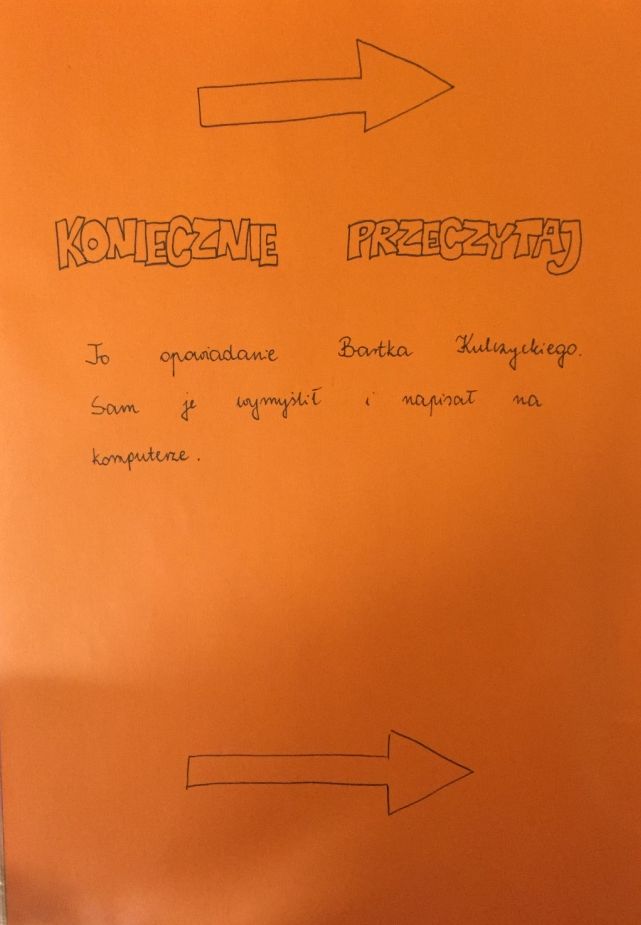 KONIECZNIE PRZECZYTAJ
To opowiadanie Bartka Kulczyckiego.
Sam je wymyślił i napisał na
komputerze.